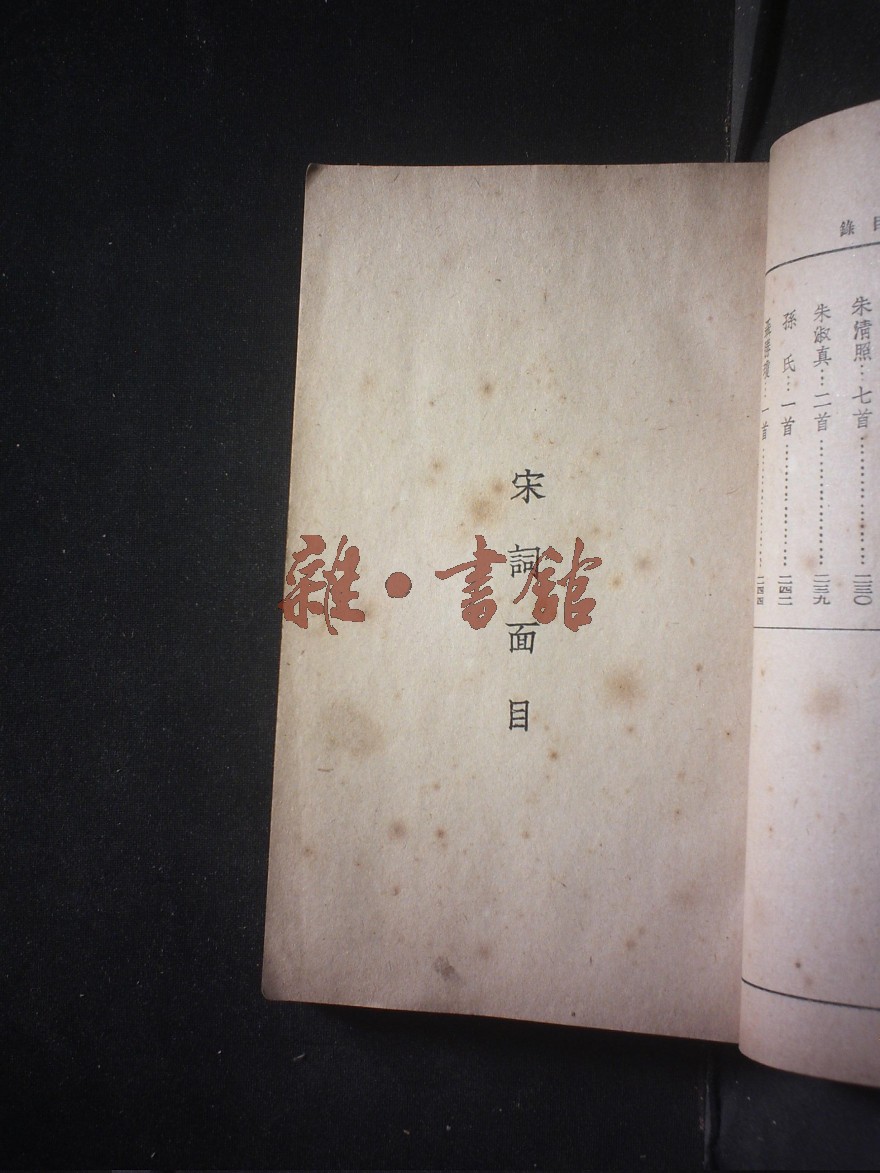 目錄
朱清照…七首………………二三〇
朱淑真…二首………………二三九
孫 氏…一首………………二四二
聶勝瓊…一首………………二四四
宋詞面目
雜·書館